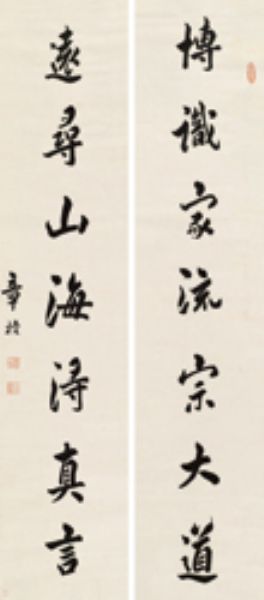 博識家流宗大道
遠尋山海得真言
章梫